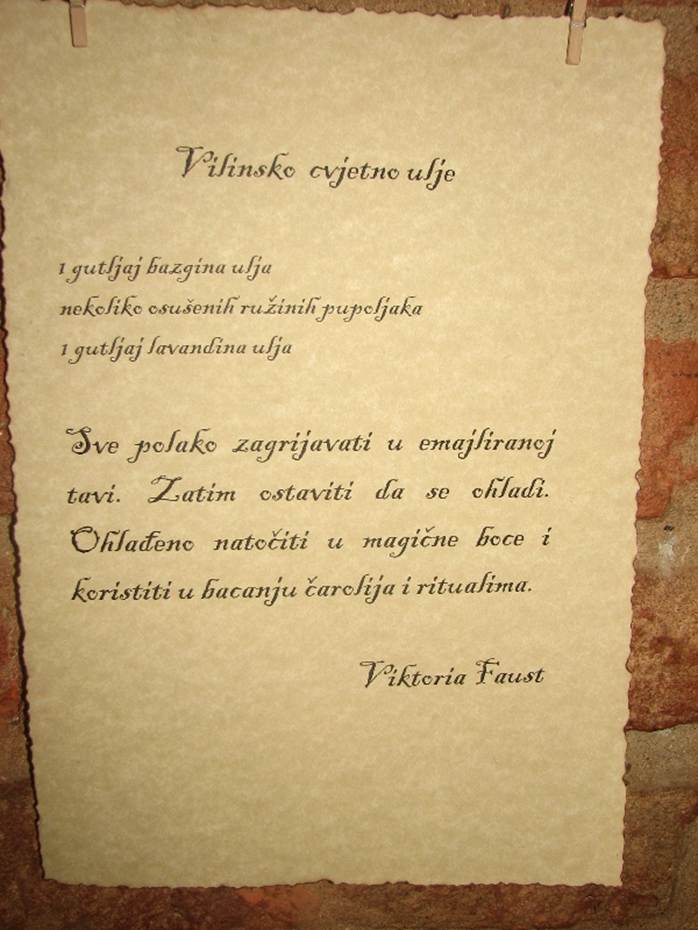 Vilinsko cvjetno ulje
1 gutljaj bazgina ulja
nekoliko osušenih ružinih pupoljaka
1 gutljaj lavandina ulja
Sve polako zagrijavati u emajliranoj
tavi. Zatim ostaviti da se ohladi.
Ohlađeno natočiti u magične boce i
koristiti u bacanju čarolija i ritualima.
Viktoria Faust